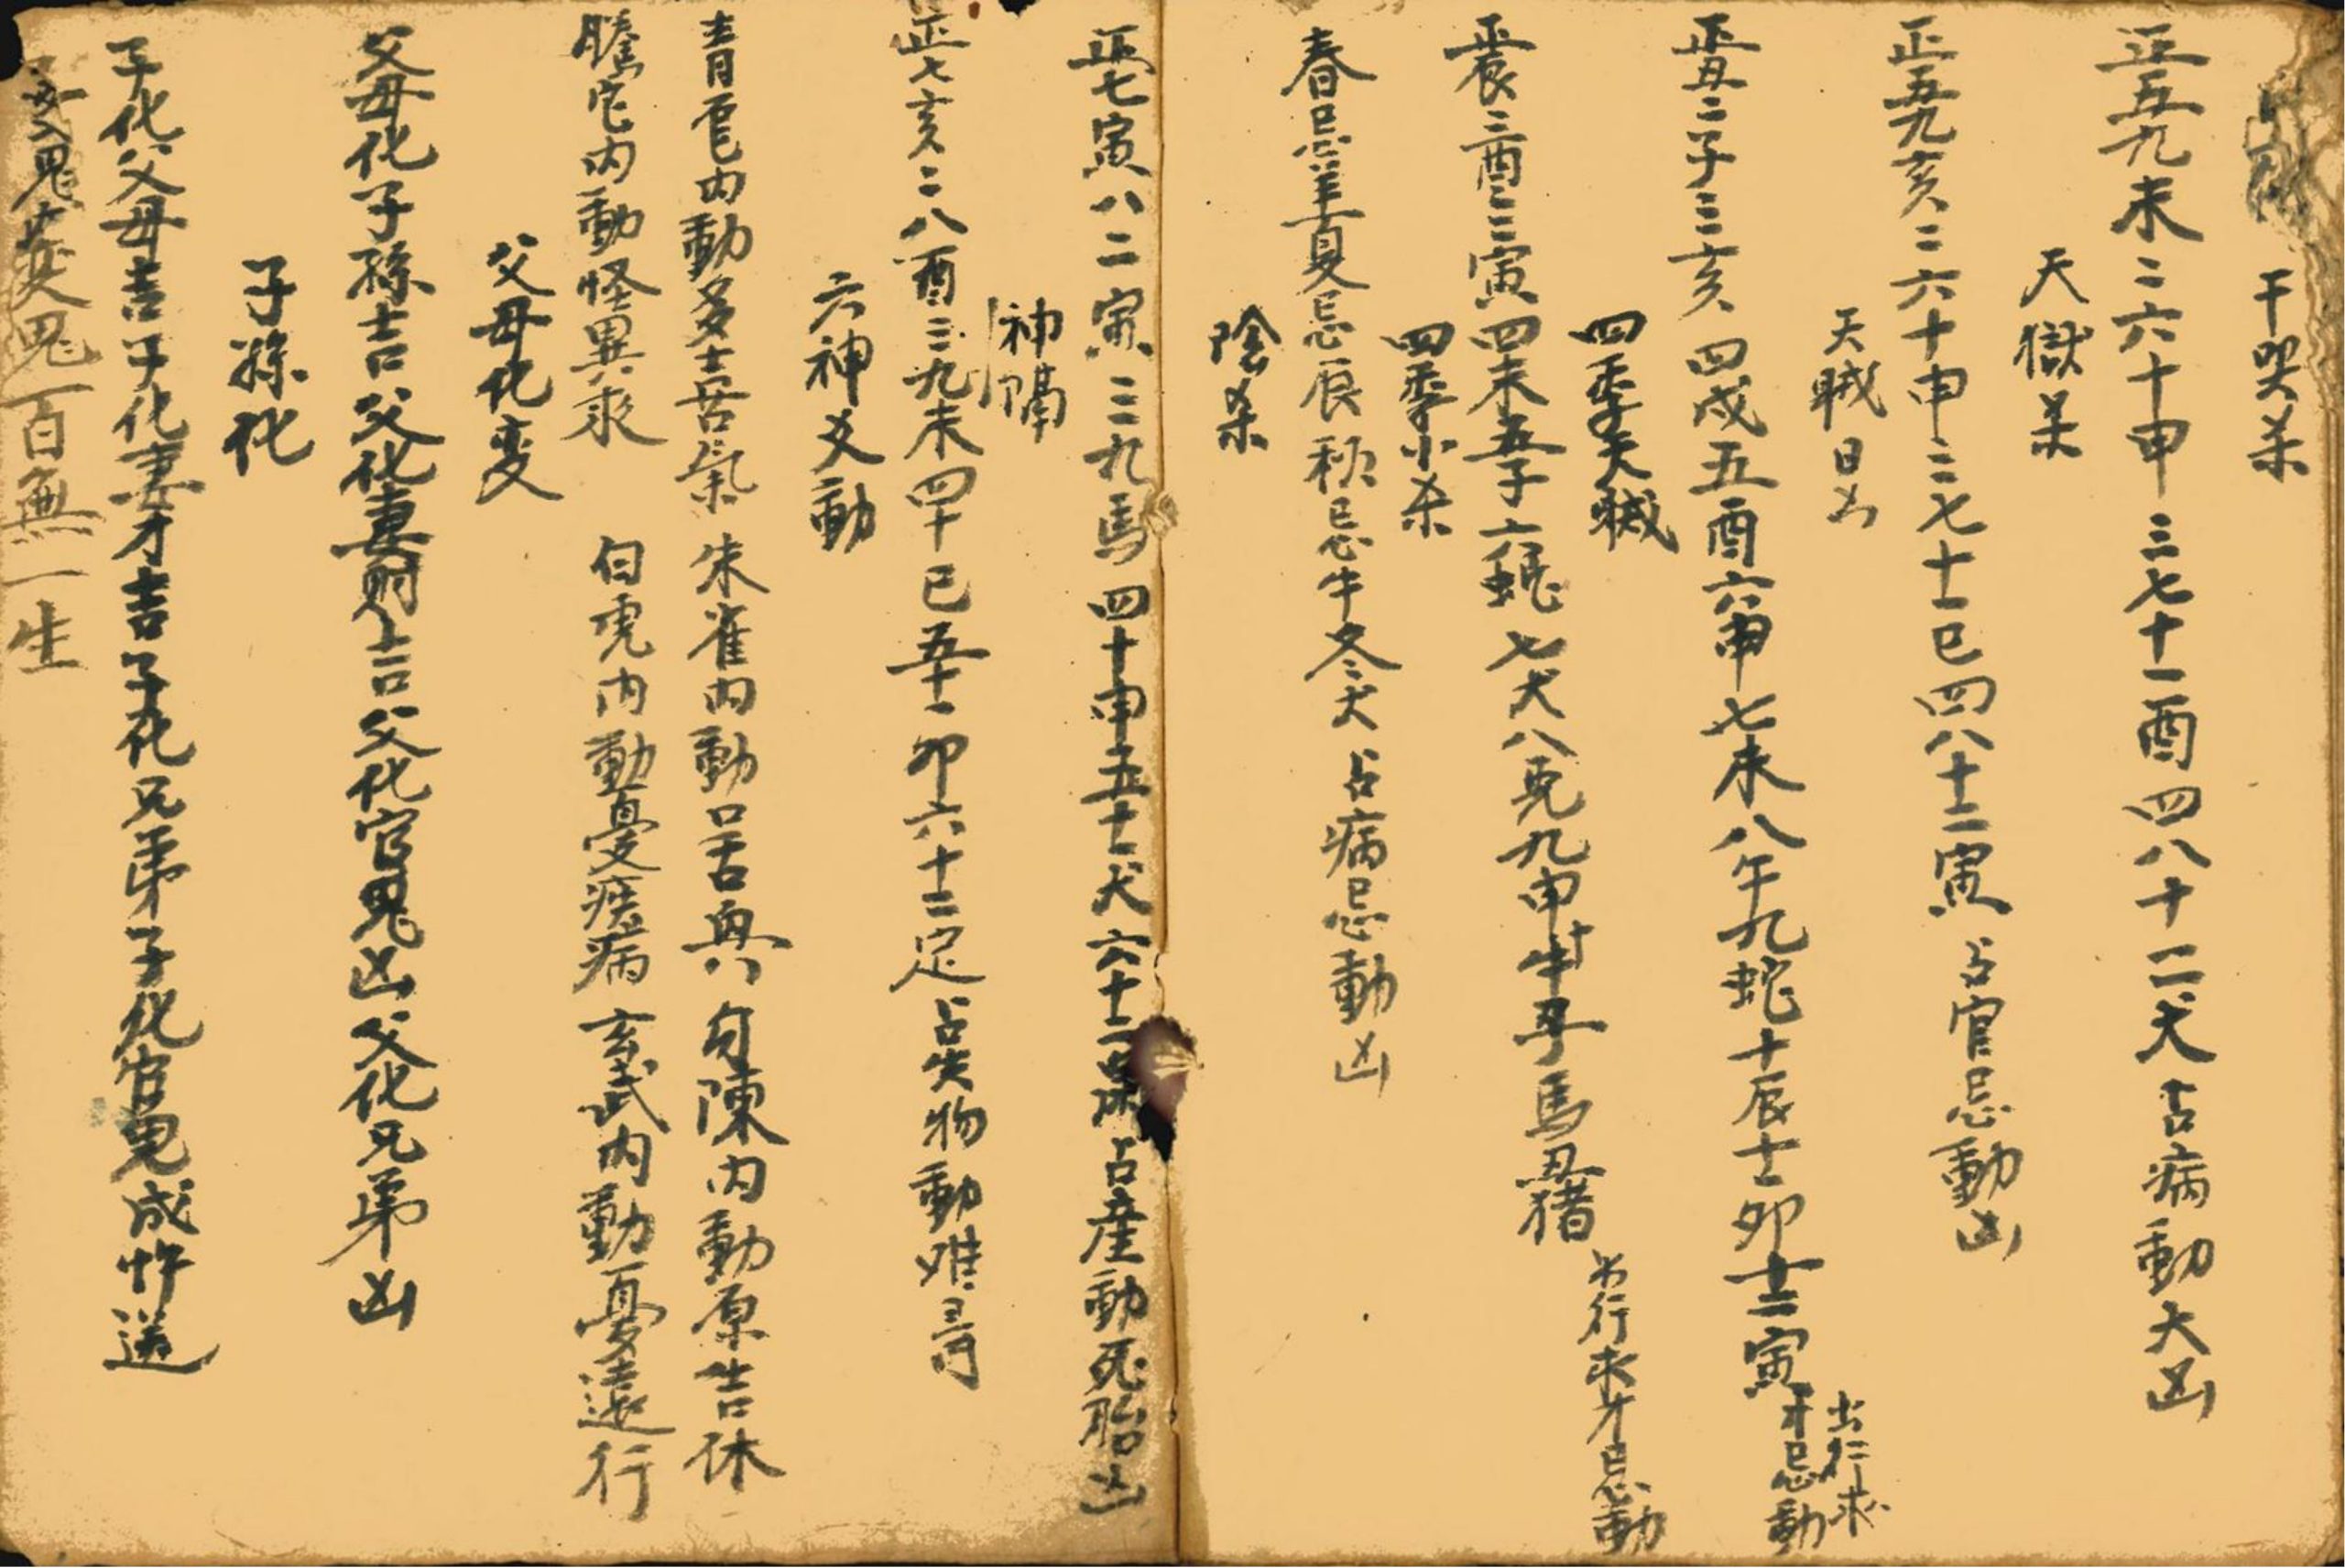 干哭杀
正五九未二六十申三七十一酉四八十二犬占病動大凶
天獄杀
正五九亥二六十申三七十一巳四八十二寅占官忌動凶
天賊日
正丑二子三亥四戌五酉六申七未八午九蛇十辰十一卯十二寅出行求才忌動
四季天賊
正辰二酉三寅四未五子六蛇七犬八兔九申十牛馬猪出行求才忌動
四季小杀
春忌羊夏忌辰秋忌牛冬犬占病忌動凶
陰杀
正七寅八二寅三九馬四十申五十一犬六十二占産動死胎凶
神隔
正七亥二八酉三九未四十巳五十一卯六十二丑占失物動难尋
六神爻動
青竜内動多吉氣朱雀内動口舌興勾陳内動原告休
騰它内動怪異求白虎内動憂疾病玄武内動憂遠行
父母化变
父母化子孫吉父化妻財吉父化官鬼凶父化兄弟凶
子孫化
子化父母吉子化妻才吉子化兄弟子化官鬼成作送
鬼百無一生